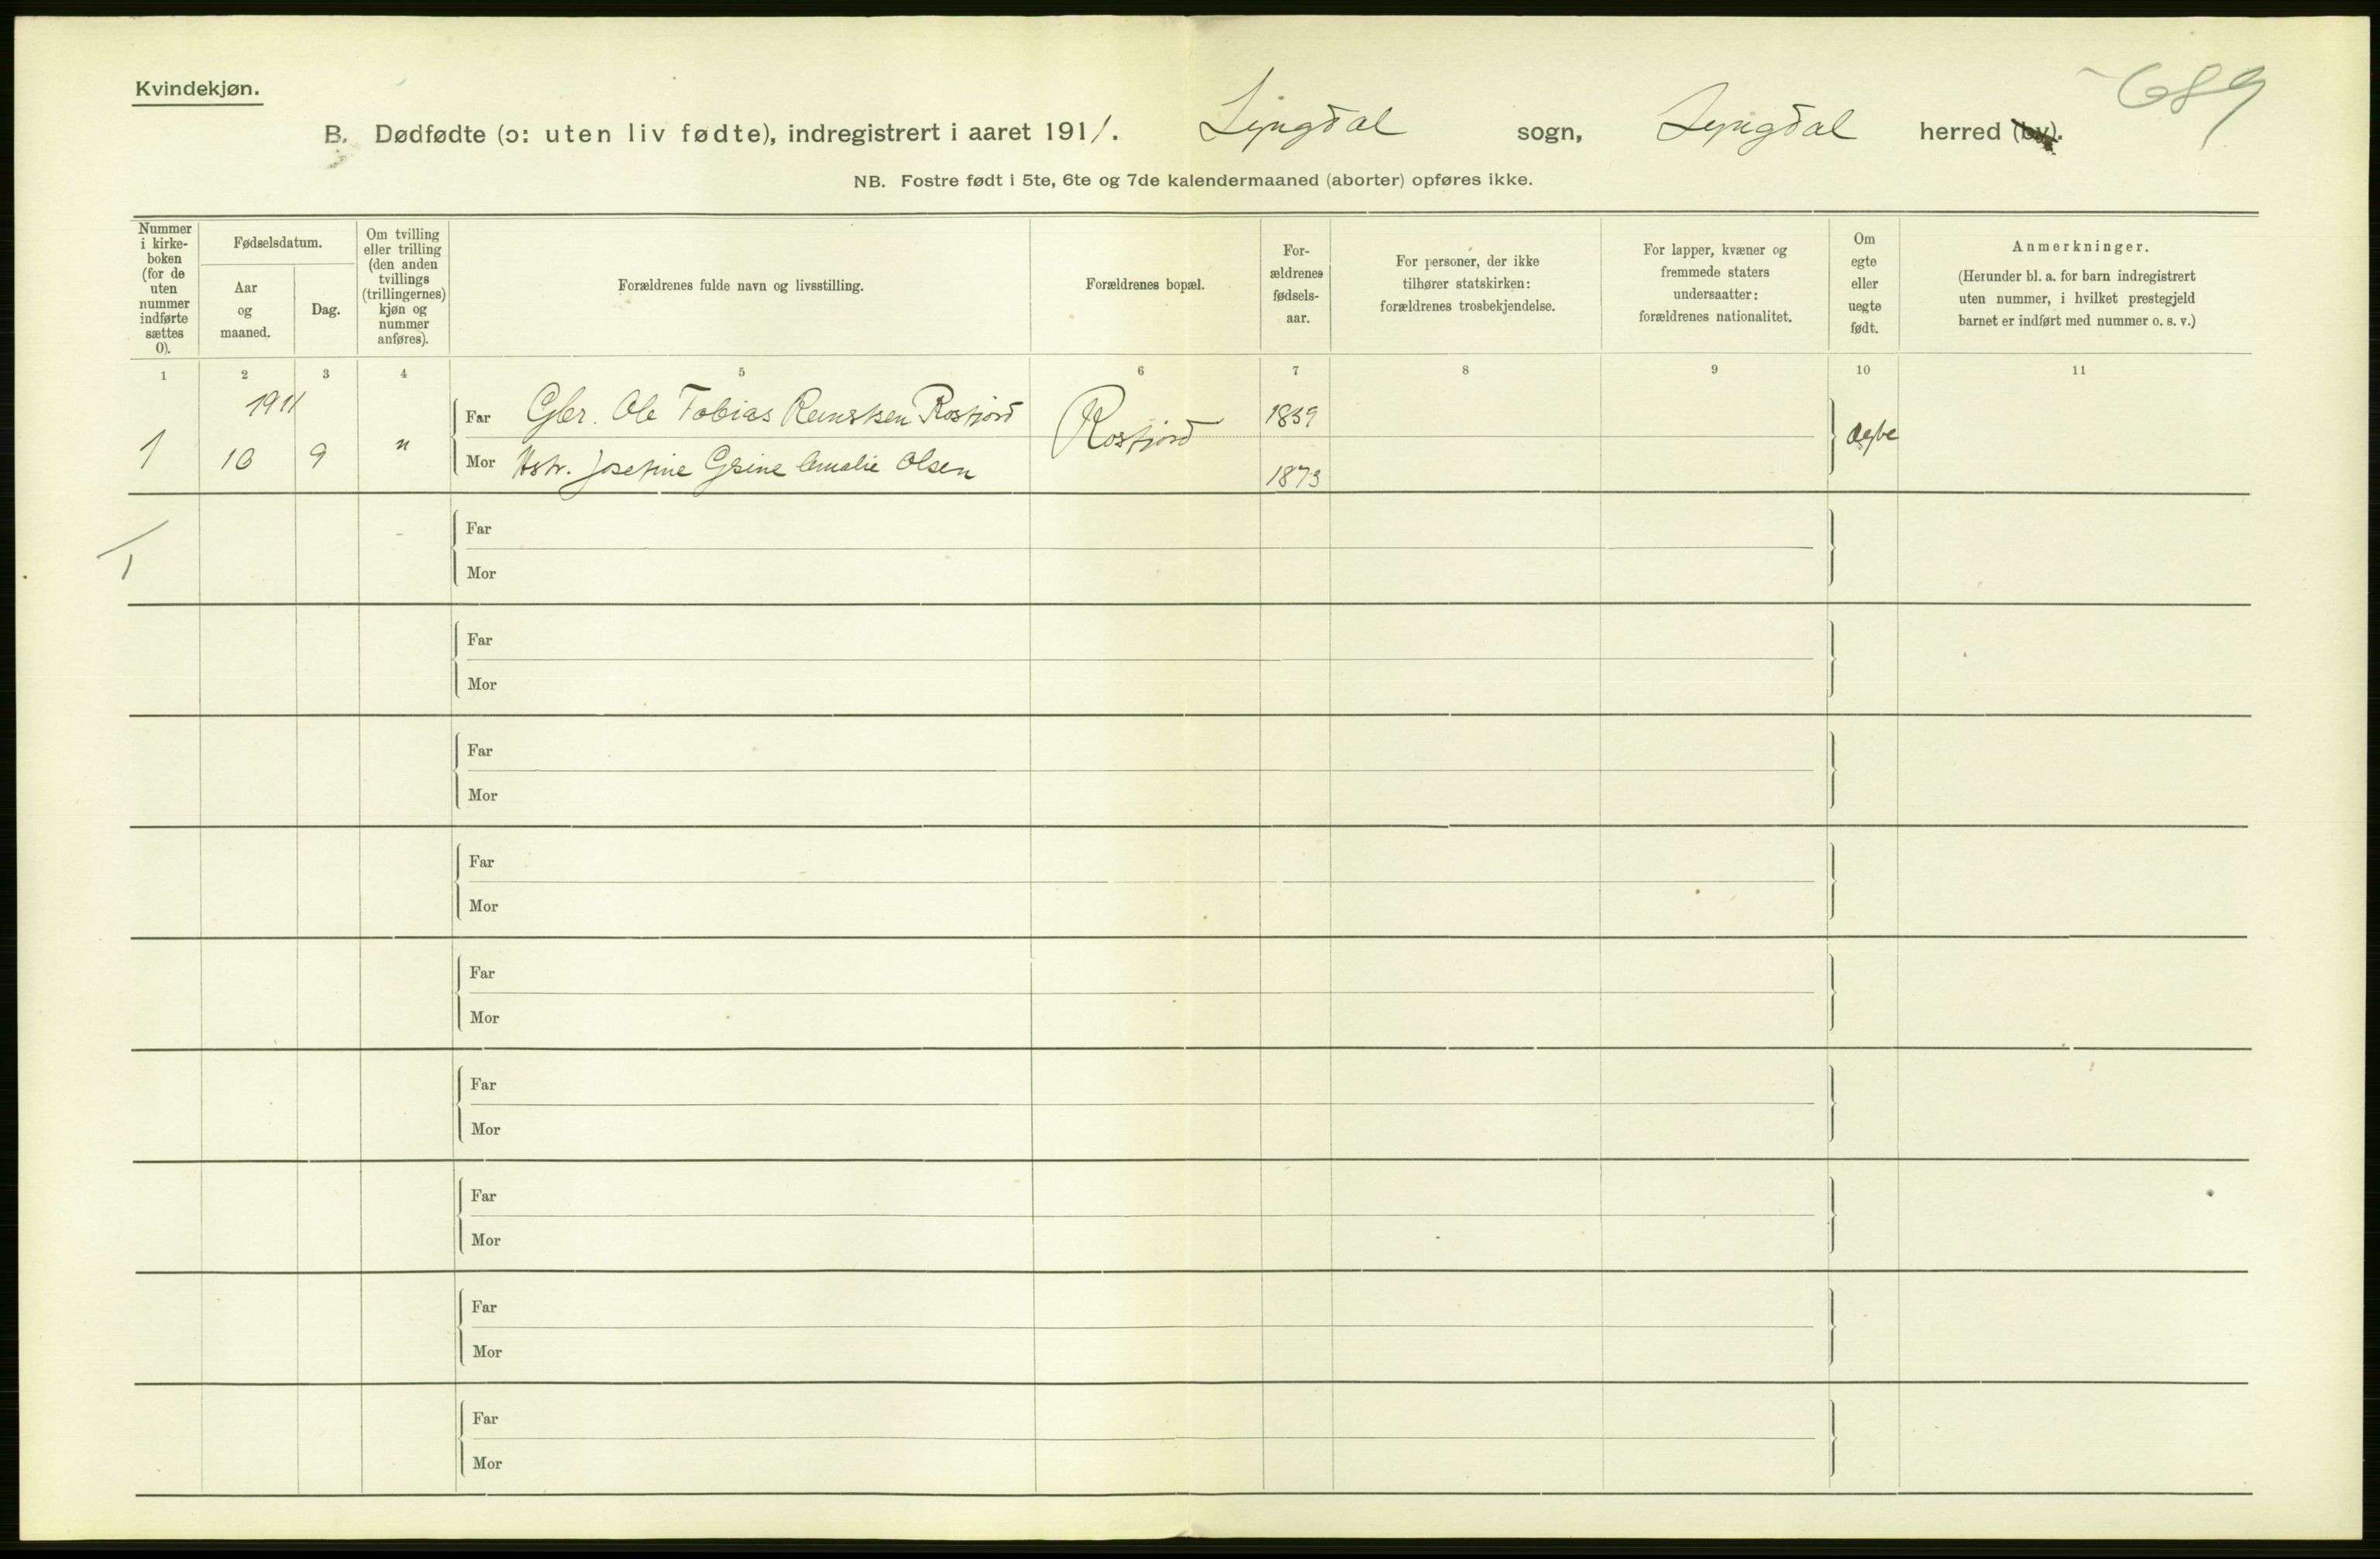 Kvindekjøn.
689
B. Dødfødte (ɔ: uten liv fødte), indregistrert i aaret 1911. Lyngdal sogn, Lyngdal herred (by).
NB. Fostre født i 5te, 6te og 7de kalendermaaned (aborter) opføres ikke.
Nummer
i kirke-
boken
(for de
uten
nummer
indførte
sættes
0).
Fødselsdatum.
Aar
og
maaned.
Dag.
Om tvilling
eller trilling
(den anden
tvillings
(trillingernes)
kjøn og
nummer
anføres).
Forældrenes fulde navn og livsstilling.
Forældrenes bopæl.
For-
ældrenes
fødsels-
aar.
For personer, der ikke
tilhører statskirken:
forældrenes trosbekjendelse.
For lapper, kvæner og
fremmede staters
undersaatter:
forældrenes nationalitet.
Om
egte
eller
uegte
født.
Anmerkninger.
(Herunder bl. a. for barn indregistrert
uten nummer, i hvilket prestegjeld
barnet er indført med nummer o. s. v.)
1 2 3 4 5 6 7 8 9 10 11
1911
Far Gbr. Ole Tobias Rosfjord 1839
1 10 9 " Rosfjord
Mor Hstr. Josefine Amalie Olsen 1873
Far
1
Mor
Far
Mor
Far
Mor
Far
Mor
Far
Mor
Far
Mor
Far
Mor
Far
Mor
Far
Mor